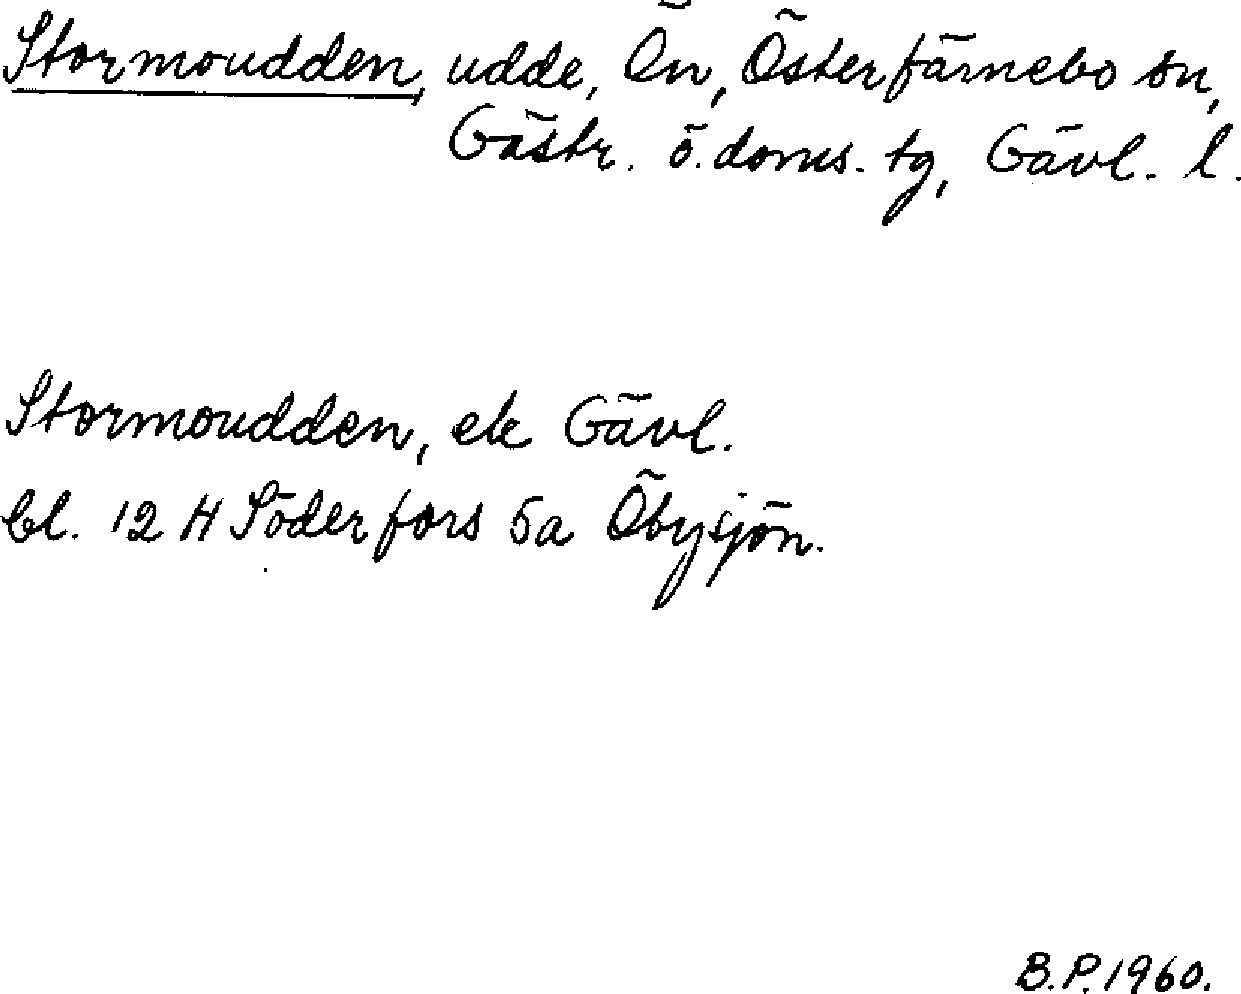 Stormoudden, udde, Ön, Österfärnebo sn,
Gästr. ö. doms. tg, Gävl. l.
Stormoudden, ek Gävl.
bl. 12 H Söderfors 5a Öbysjön.
B.P. 1960.